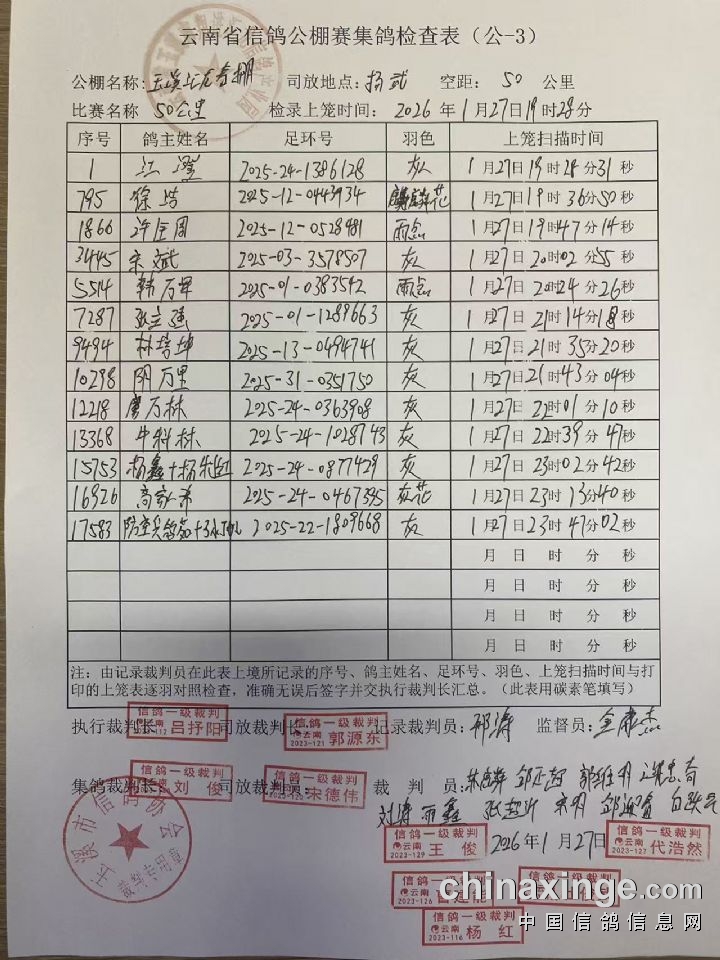 云南省信鸽公棚赛集鸽检查表（公-3）
公棚名称：玉溪汇元赛鸽 司放地点：扬武 空距：50 公里
比赛名称 50公里 检录上笼时间：2026年1月27日19时28分
序号 鸽主姓名 足环号 羽色 上笼扫描时间
1 江澄 2025-24-1386128 灰 1月27日19时28分31秒
795 徐浩 2025-12-0443934 麒麟花 1月27日19 36分50秒
1866 许宝周 2025-12-0528981 雨点 1月27日19时47分14秒
3445 宋斌 2025-03-3578507 灰 1月27日20时02分55秒
5514 韩万里 2025-01-0383542 雨点 1月27日20时24分26秒
7287 张立建 2025-01-1289663 灰 1月27日21时14分18秒
9494 林培坤 2025-13-0494741 灰 1月27日21时35分20秒
10298 阴万里 2025-31-0351750 灰 1月27日21时43分04秒
12218 廖万林 2025-24-0363908 灰 1月27日22时01分10秒
13368 牛科林 2025-24-1028743 灰 1月27日22时39分47秒
15753 杨鑫+杨 2025-24-0877429 灰 1月27日23时02分42秒
16926 高 2025-24-0467395 灰花 1月27日23时13分40秒
17583 2025-22-1809668 灰 1月27日23时47分02秒
月 日 时 分 秒
月 日 时 分 秒
月 日 时 分 秒
月 日 时 分 秒
注：由记录裁判员在此表上境所记录的序号、鸽主姓名、足环号、羽色、上笼扫描时间与打
印的上笼表逐羽对照检查，准确无误后签字并交执行裁判长汇总。（此表用碳素笔填写）
执行裁判长 司放裁判长 记录裁判员：邓涛 监督员：
信鸽一级裁判
云南 吕抒阳
信鸽一级裁判
云南 2023-121 郭源东
集鸽裁判长 司放裁判员： 裁 判 员：
信鸽一级裁判
云南 刘俊
信鸽一级裁判
云南 宋德伟
刘涛 雨鑫
玉溪市信鸽协会
信鸽一级裁判
云南 2023-129 王俊
2026年1月27日
信鸽一级裁判
云南 2023-127 代浩然
信鸽一级裁判
云南 2023-126
信鸽一级裁判
信鸽一级裁判
云南 2023-116 杨红
chinaxinge.com
中国信鸽信息网